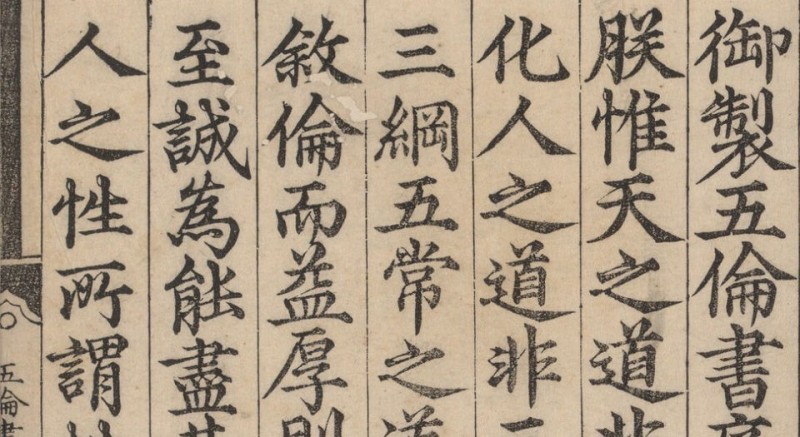 御製五倫書
朕惟天之道非
化人之道非
三綱五常之道
敘倫而益厚則
至誠為能盡其
人之性所謂
五倫書